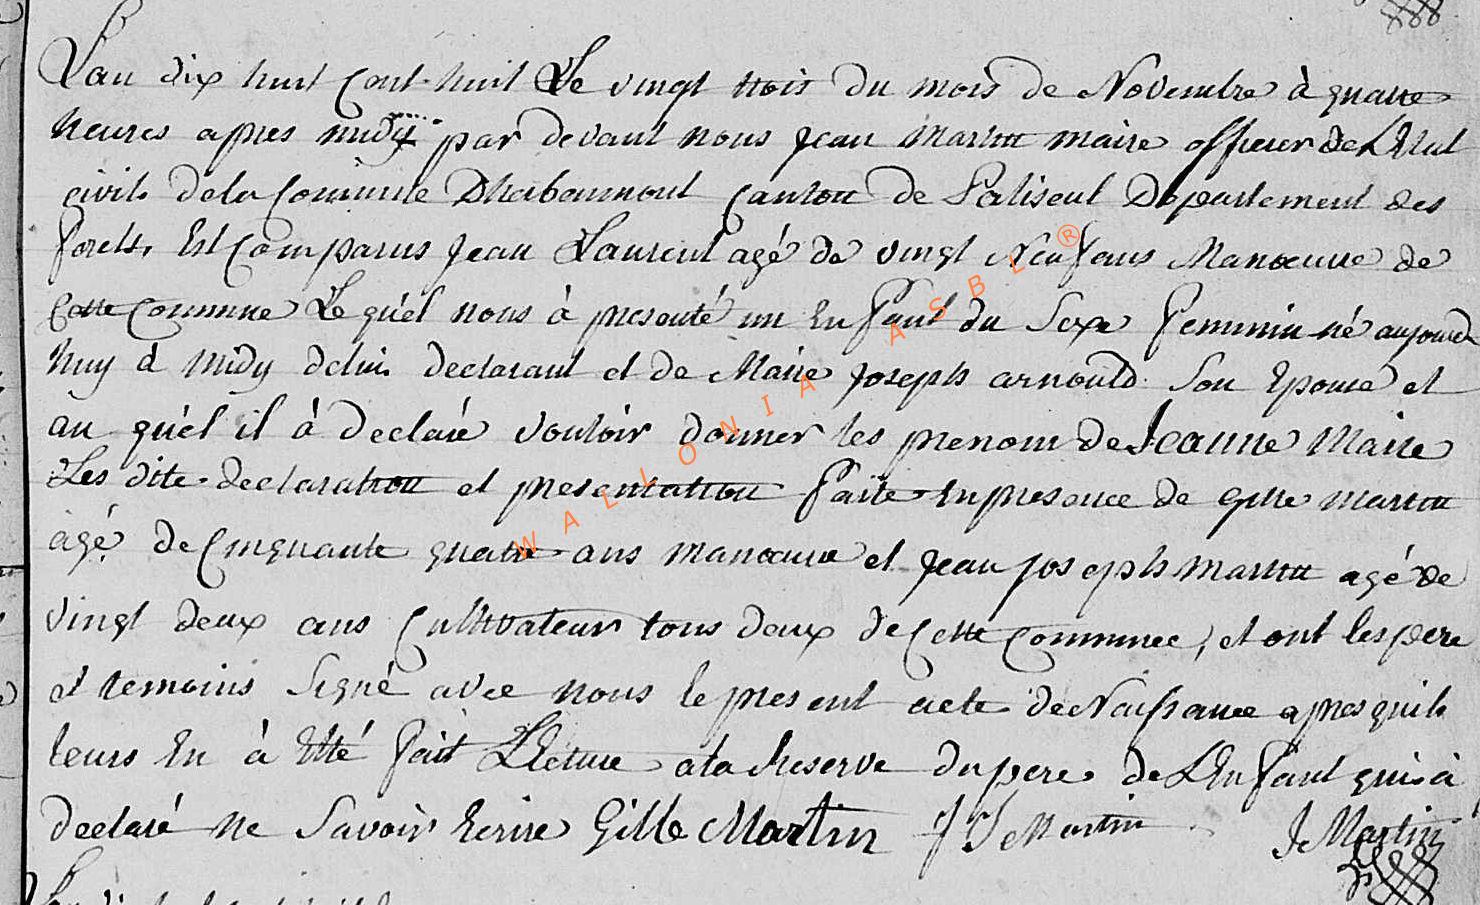 L'an dix huit cent huit Le vingt trois du mois de Novembre à quatre
heures apres midy par devant nous Jean Martin maire officier de L'Etat
civil de la Commune Dhabaumont Canton de Paliseul Departement des
forets, Est Comparus Jean Laurent agé de vingt Neuf ans Manoeuvre de
Cette Commune Le quél nous à presenté un Enfant du Sexe Feminin né aujourd
huy à Midy de lui declarant et de Marie Joseph arnould Son Epouse et
au quél il à declaré vouloir donner les prenom de Jeanne Marie
Les dite declaration et presentation faite En presence de Gille Martin
agé de Cinquante quatre ans manoeuvre et Jean joseph Martin agé de
vingt deux ans Cultivateur tous deux de Cette Commune, et ont les pere
et temoins Signé avec nous le present acte de Naissance apres quil
leurs En à Etté fait LLecture a la Reserve du pere de L'Enfant qui à
declaré ne Savoir Ecrire Gille Martin J J Martin J Martin
WALLONIA ASBL ®